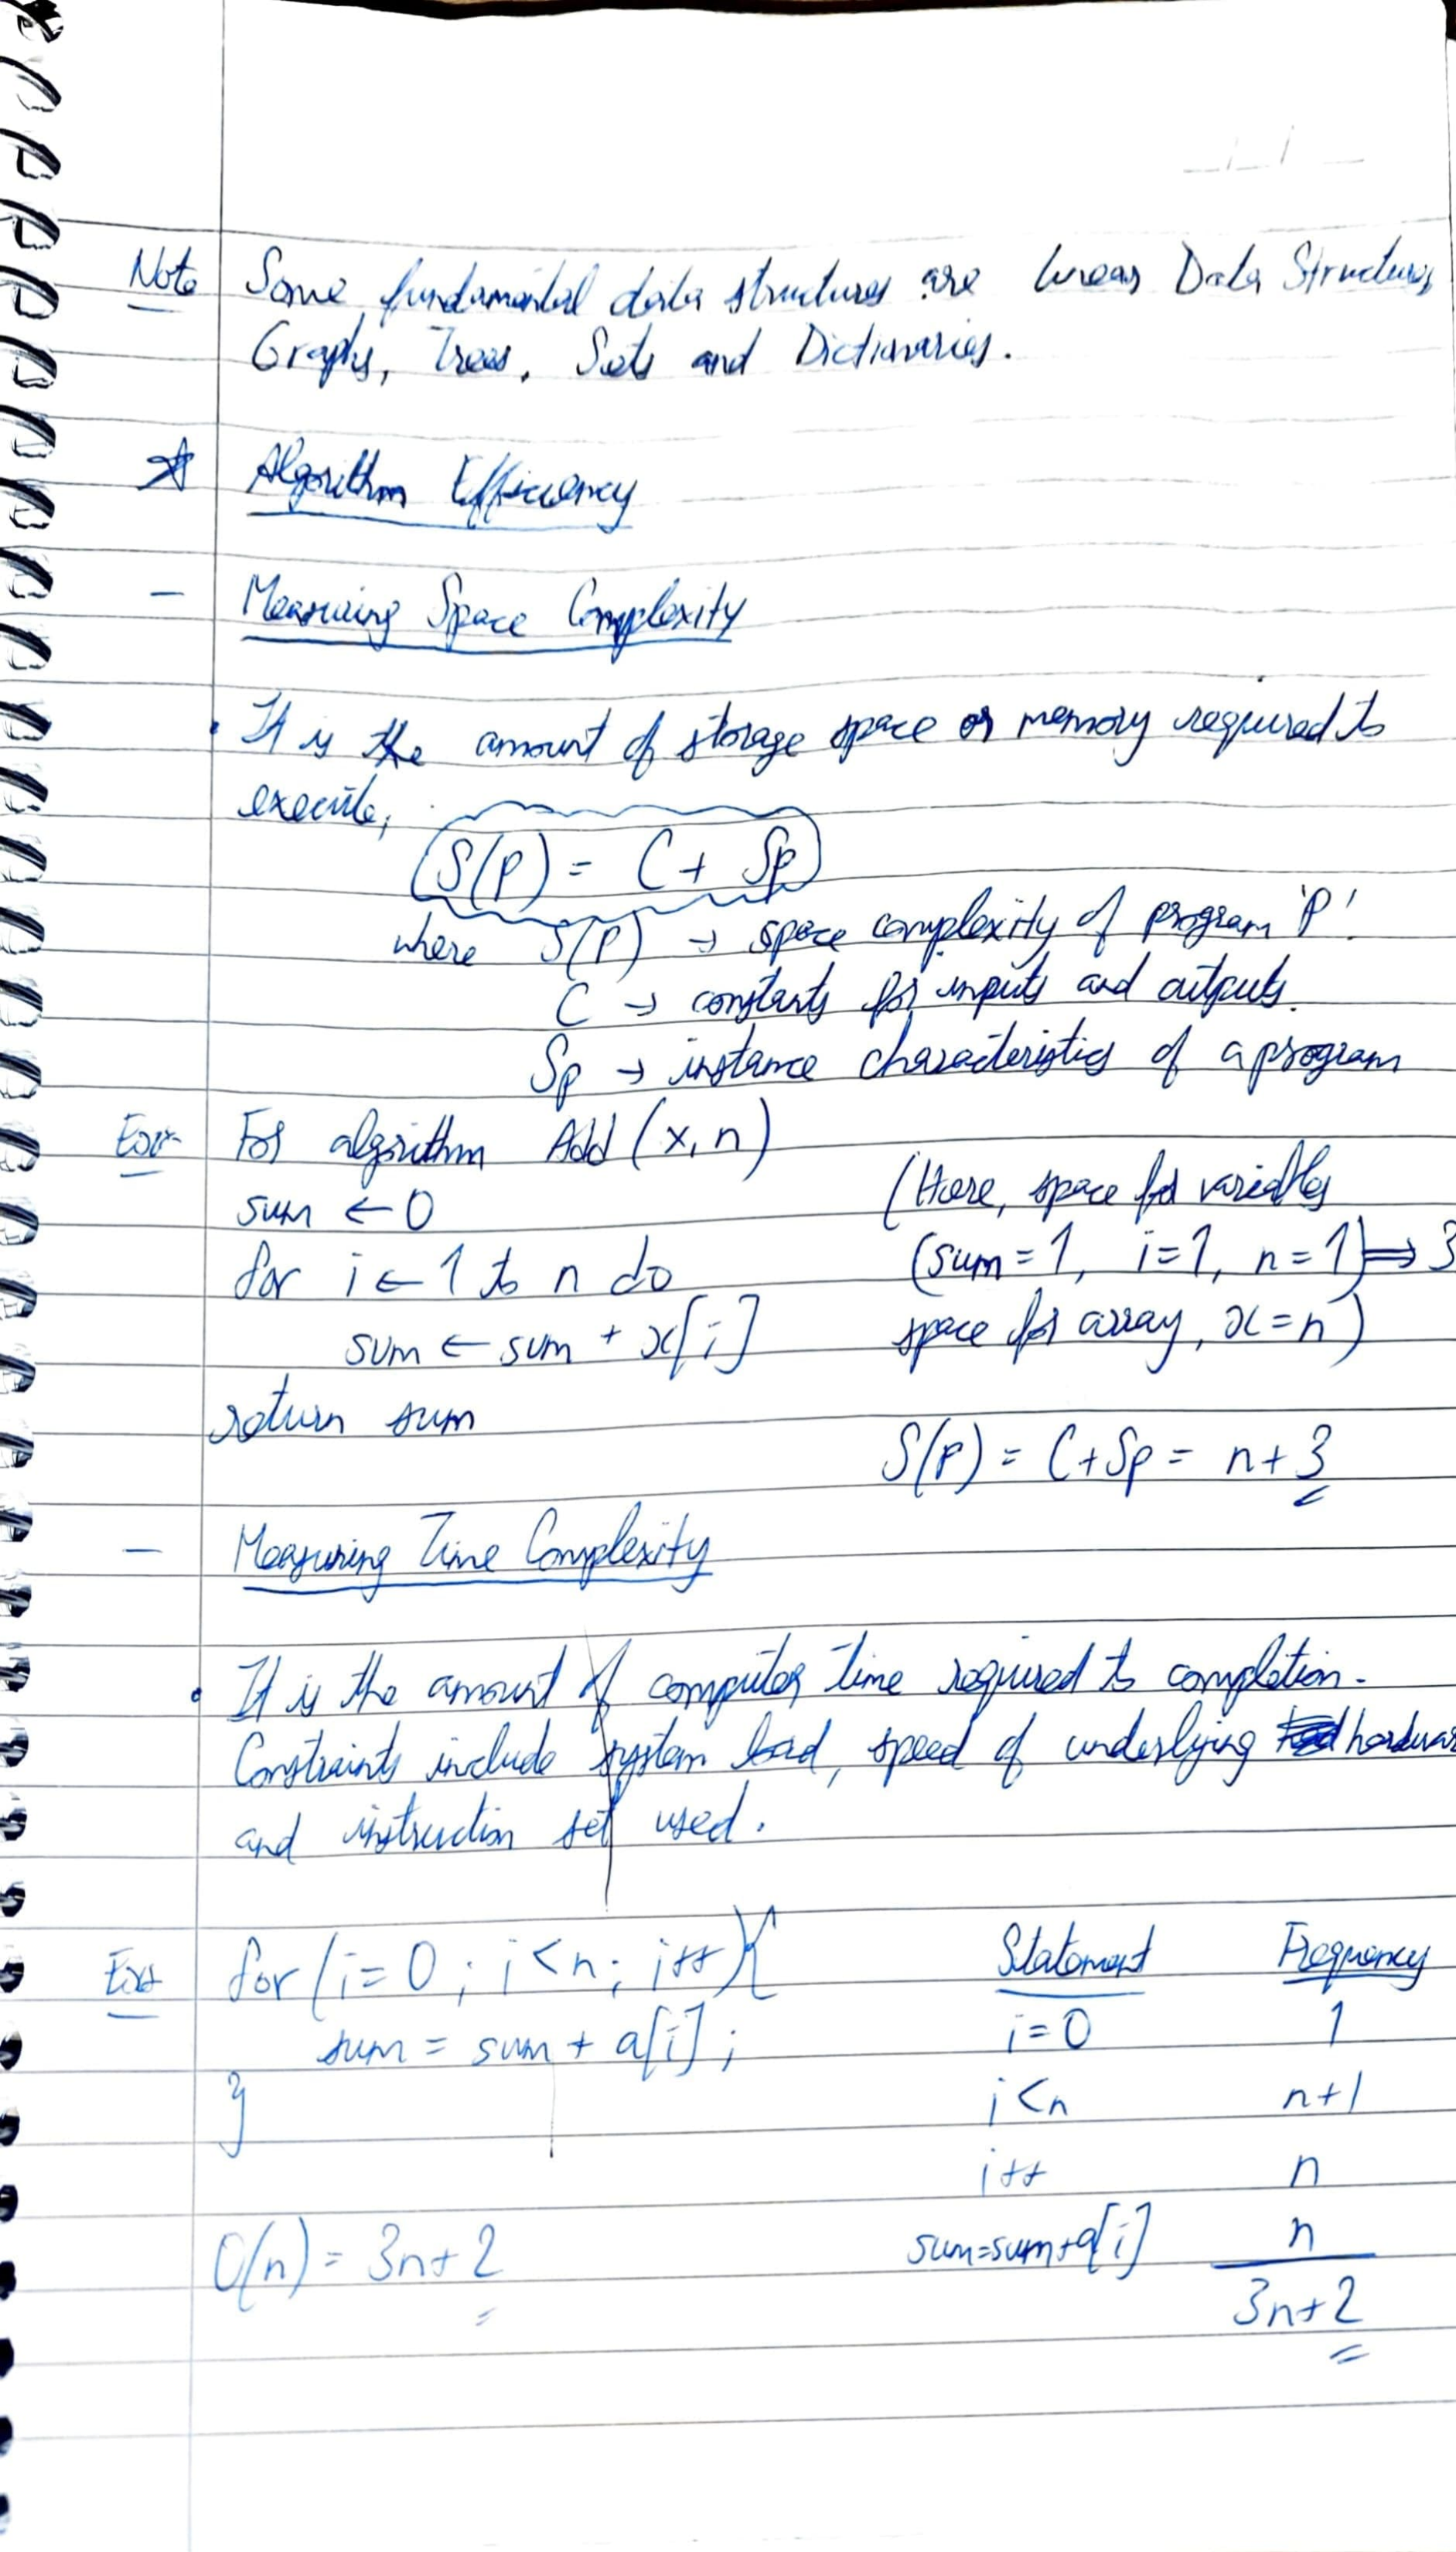 Note Some fundamental data structures are linear Data Structures,
Graphs, Trees, Sets and Dictionaries.
☆ Algorithm Efficiency
- Measuring Space Complexity
• It is the amount of storage space or memory required to
execute,
S(P) = C + Sp
where S(P) → space complexity of program 'P'.
C → constants for inputs and outputs.
Sp → instance characteristics of a program
Ex:- For algorithm Add (x, n)
sum ← 0
(Here, space for variables
for i ← 1 to n do
(sum = 1, i = 1, n = 1) ⇒ 3
sum ← sum + x[i]
space for array, x = n)
return sum
S(P) = C + Sp = n + 3
- Measuring Time Complexity
• It is the amount of computer time required to completion.
Constraints include system load, speed of underlying hardwar
and instruction set used.
Ex:- for (i = 0 ; i < n ; i++) {
Statement Frequency
sum = sum + a[i] ;
i = 0 1
}
i < n n+1
i++ n
O(n) = 3n + 2
sum = sum + a[i] n
3n + 2